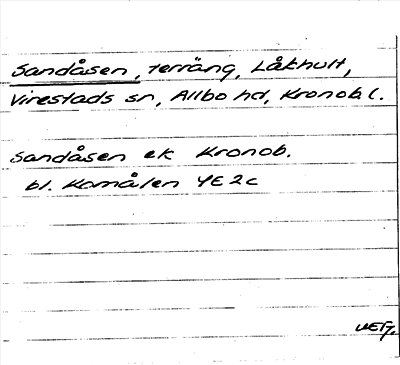 Sandåsen, terräng, Låkhult,
Virestads sn, Allbo hd, Kronob. l.
Sandåsen ek Kronob.
bl. Komålen 4E2c